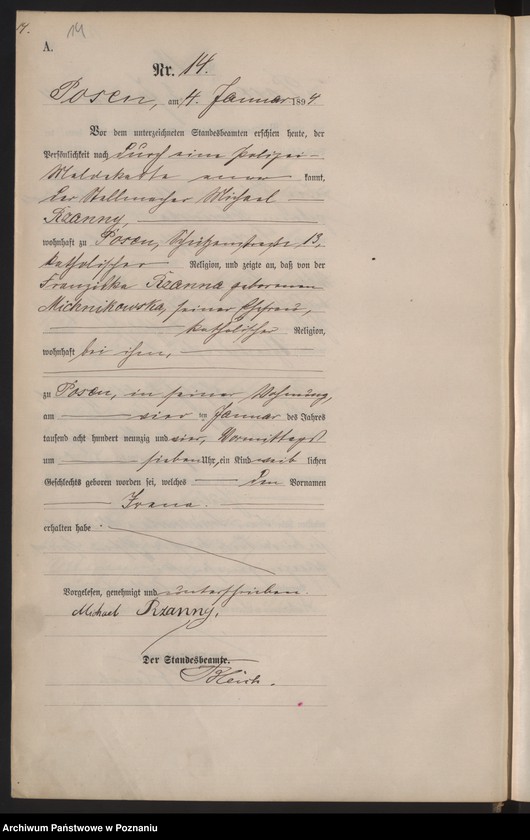 14. 14
A.
Nr. 14.
Posen, am 4. Januar 1894
Vor dem unterzeichneten Standesbeamten erschien heute, der
Persönlichkeit nach durch eine Polizei-
Meldekarte aner kannt,
der Stellmacher Michael
Rzanny,
wohnhaft zu Posen, Schützenstraße 13,
katholischer Religion, und zeigte an, daß von der
Franziska Rzanna geborenen
Michnikowska, seiner Ehefrau,
katholischer Religion,
wohnhaft bei ihm,
zu Posen, in seiner Wohnung,
am vier ten Januar des Jahres
tausend acht hundert neunzig und vier, Vormittags
um sieben Uhr, ein Kind weib lichen
Geschlechts geboren worden sei, welches den Vornamen
Irena.
erhalten habe.
Vorgelesen, genehmigt und unterschrieben.
Michael Rzanny,
Der Standesbeamte.
Archiwum Państwowe w Poznaniu